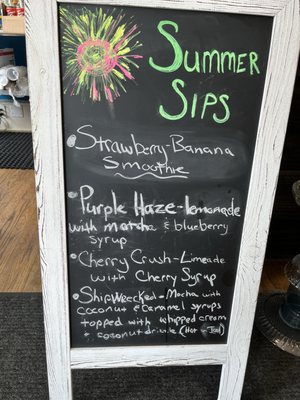 Summer
Sips
Strawberry-Banana
Smoothie
Purple Haze-lemonade
with matcha & blueberry
syrup
Cherry Crush-Limeade
with Cherry Syrup
Shipwrecked-Mocha with
coconut & caramel syrups
topped with whipped cream
+ coconut drizzle (Hot or Iced)